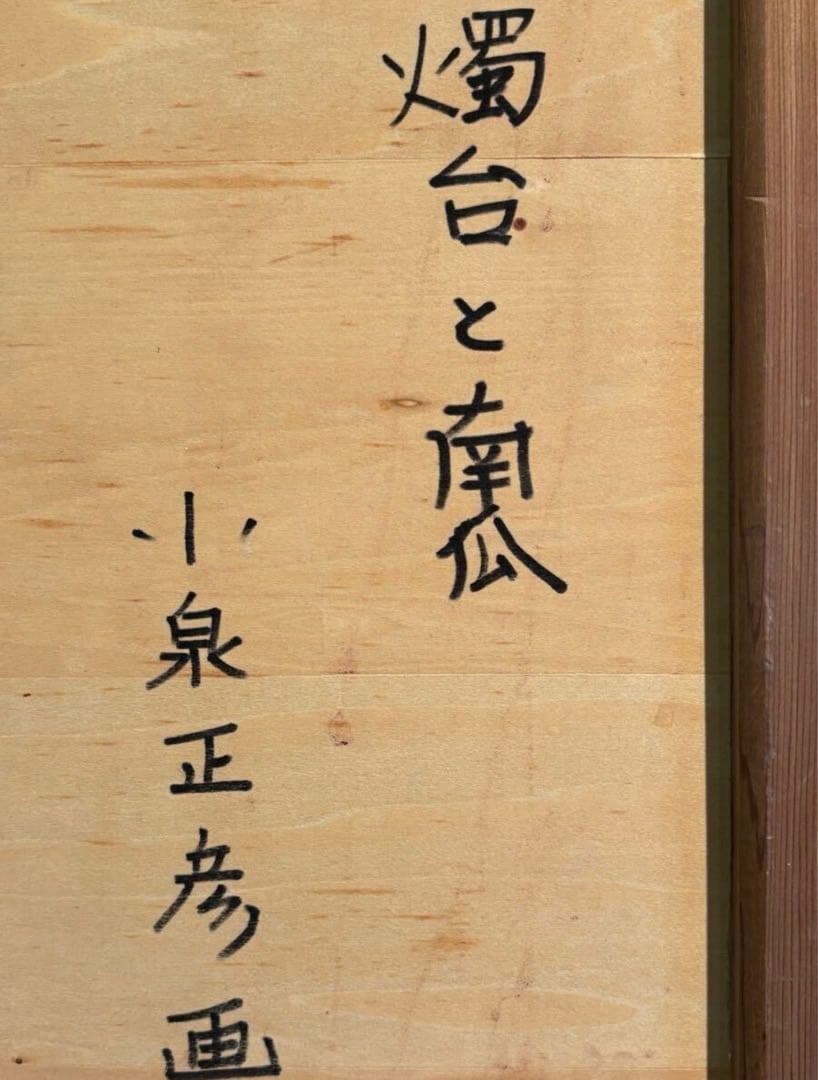 燭台と南瓜
小泉正彦画